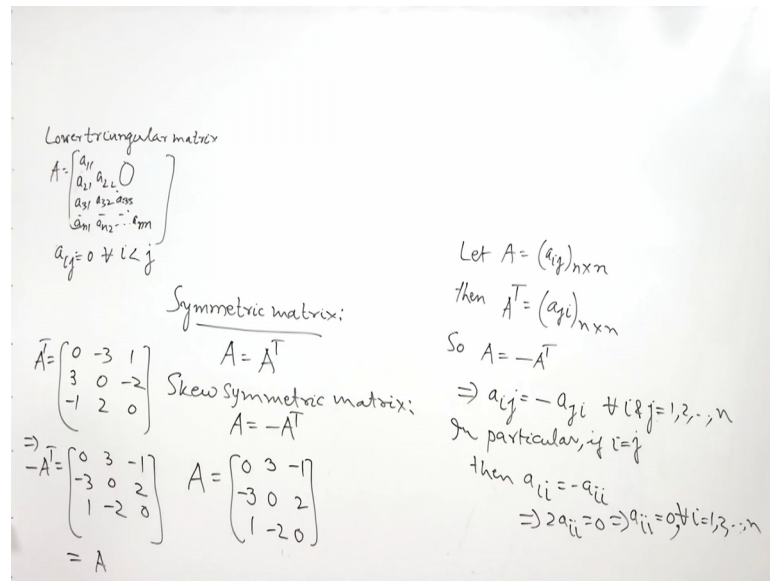 Lower triangular matrix
A = [a₁₁
a₂₁ a₂₂ 0
a₃₁ a₃₂ a₃₃
aₙ₁ aₙ₂ -- aₙₙ]
aᵢⱼ = 0 ∀ i < j
Symmetric matrix:
A = Aᵀ
Skew symmetric matrix:
A = -Aᵀ
A = [0 3 -1
-3 0 2
1 -2 0]
Aᵀ = [0 -3 1
3 0 -2
-1 2 0]
⇒
-Aᵀ = [0 3 -1
-3 0 2
1 -2 0]
= A
Let A = (aᵢⱼ)ₙₓₙ
then Aᵀ = (aⱼᵢ)ₙₓₙ
So A = -Aᵀ
⇒ aᵢⱼ = -aⱼᵢ ∀ i & j = 1,2,..,n
In particular, if i=j
then aᵢᵢ = -aᵢᵢ
⇒ 2aᵢᵢ = 0 ⇒ aᵢᵢ = 0, ∀ i=1,2,..,n